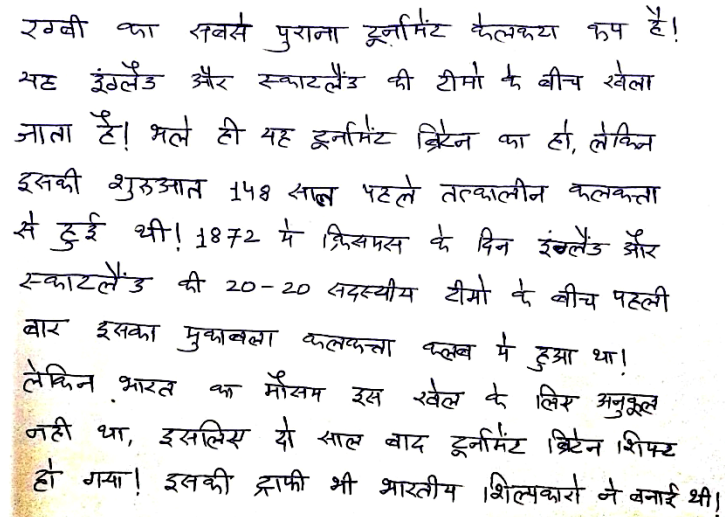 रग्बी का सबसे पुराना टूर्नामेंट केलकटा कप है!
यह इंग्लैंड और स्काटलैंड की टीमो के बीच खेला
जाता है! भले ही यह टूर्नामेंट ब्रिटेन का हो, लेकिन
इसकी शुरुआत 148 साल पहले तत्कालीन कलकत्ता
से हुई थी! 1872 मे क्रिसमस के दिन इंग्लैंड और
स्काटलैंड की 20-20 सदस्यीय टीमो के बीच पहली
बार इसका मुकाबला कलकत्ता क्लब मे हुआ था!
लेकिन भारत का मौसम इस खेल के लिए अनुकूल
नही था, इसलिए दो साल बाद टूर्नामेंट ब्रिटेन शिफ्ट
हो गया! इसकी ट्राफी भी भारतीय शिल्पकारो ने बनाई थी!